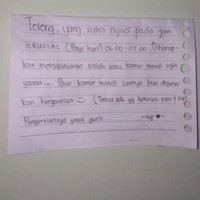 Tolong, yang suka nyuci pada jam
KRUSIAL (Pagi hari) 06.00 - 07.00 Diharap-
kan menggunakan salah satu kamar mandi saja
yaaaa.... Biar kamar mandi lainnya bisa diguna-
kan bergantian (Takut ada yg keburu
Pengertiannya yaaa guys